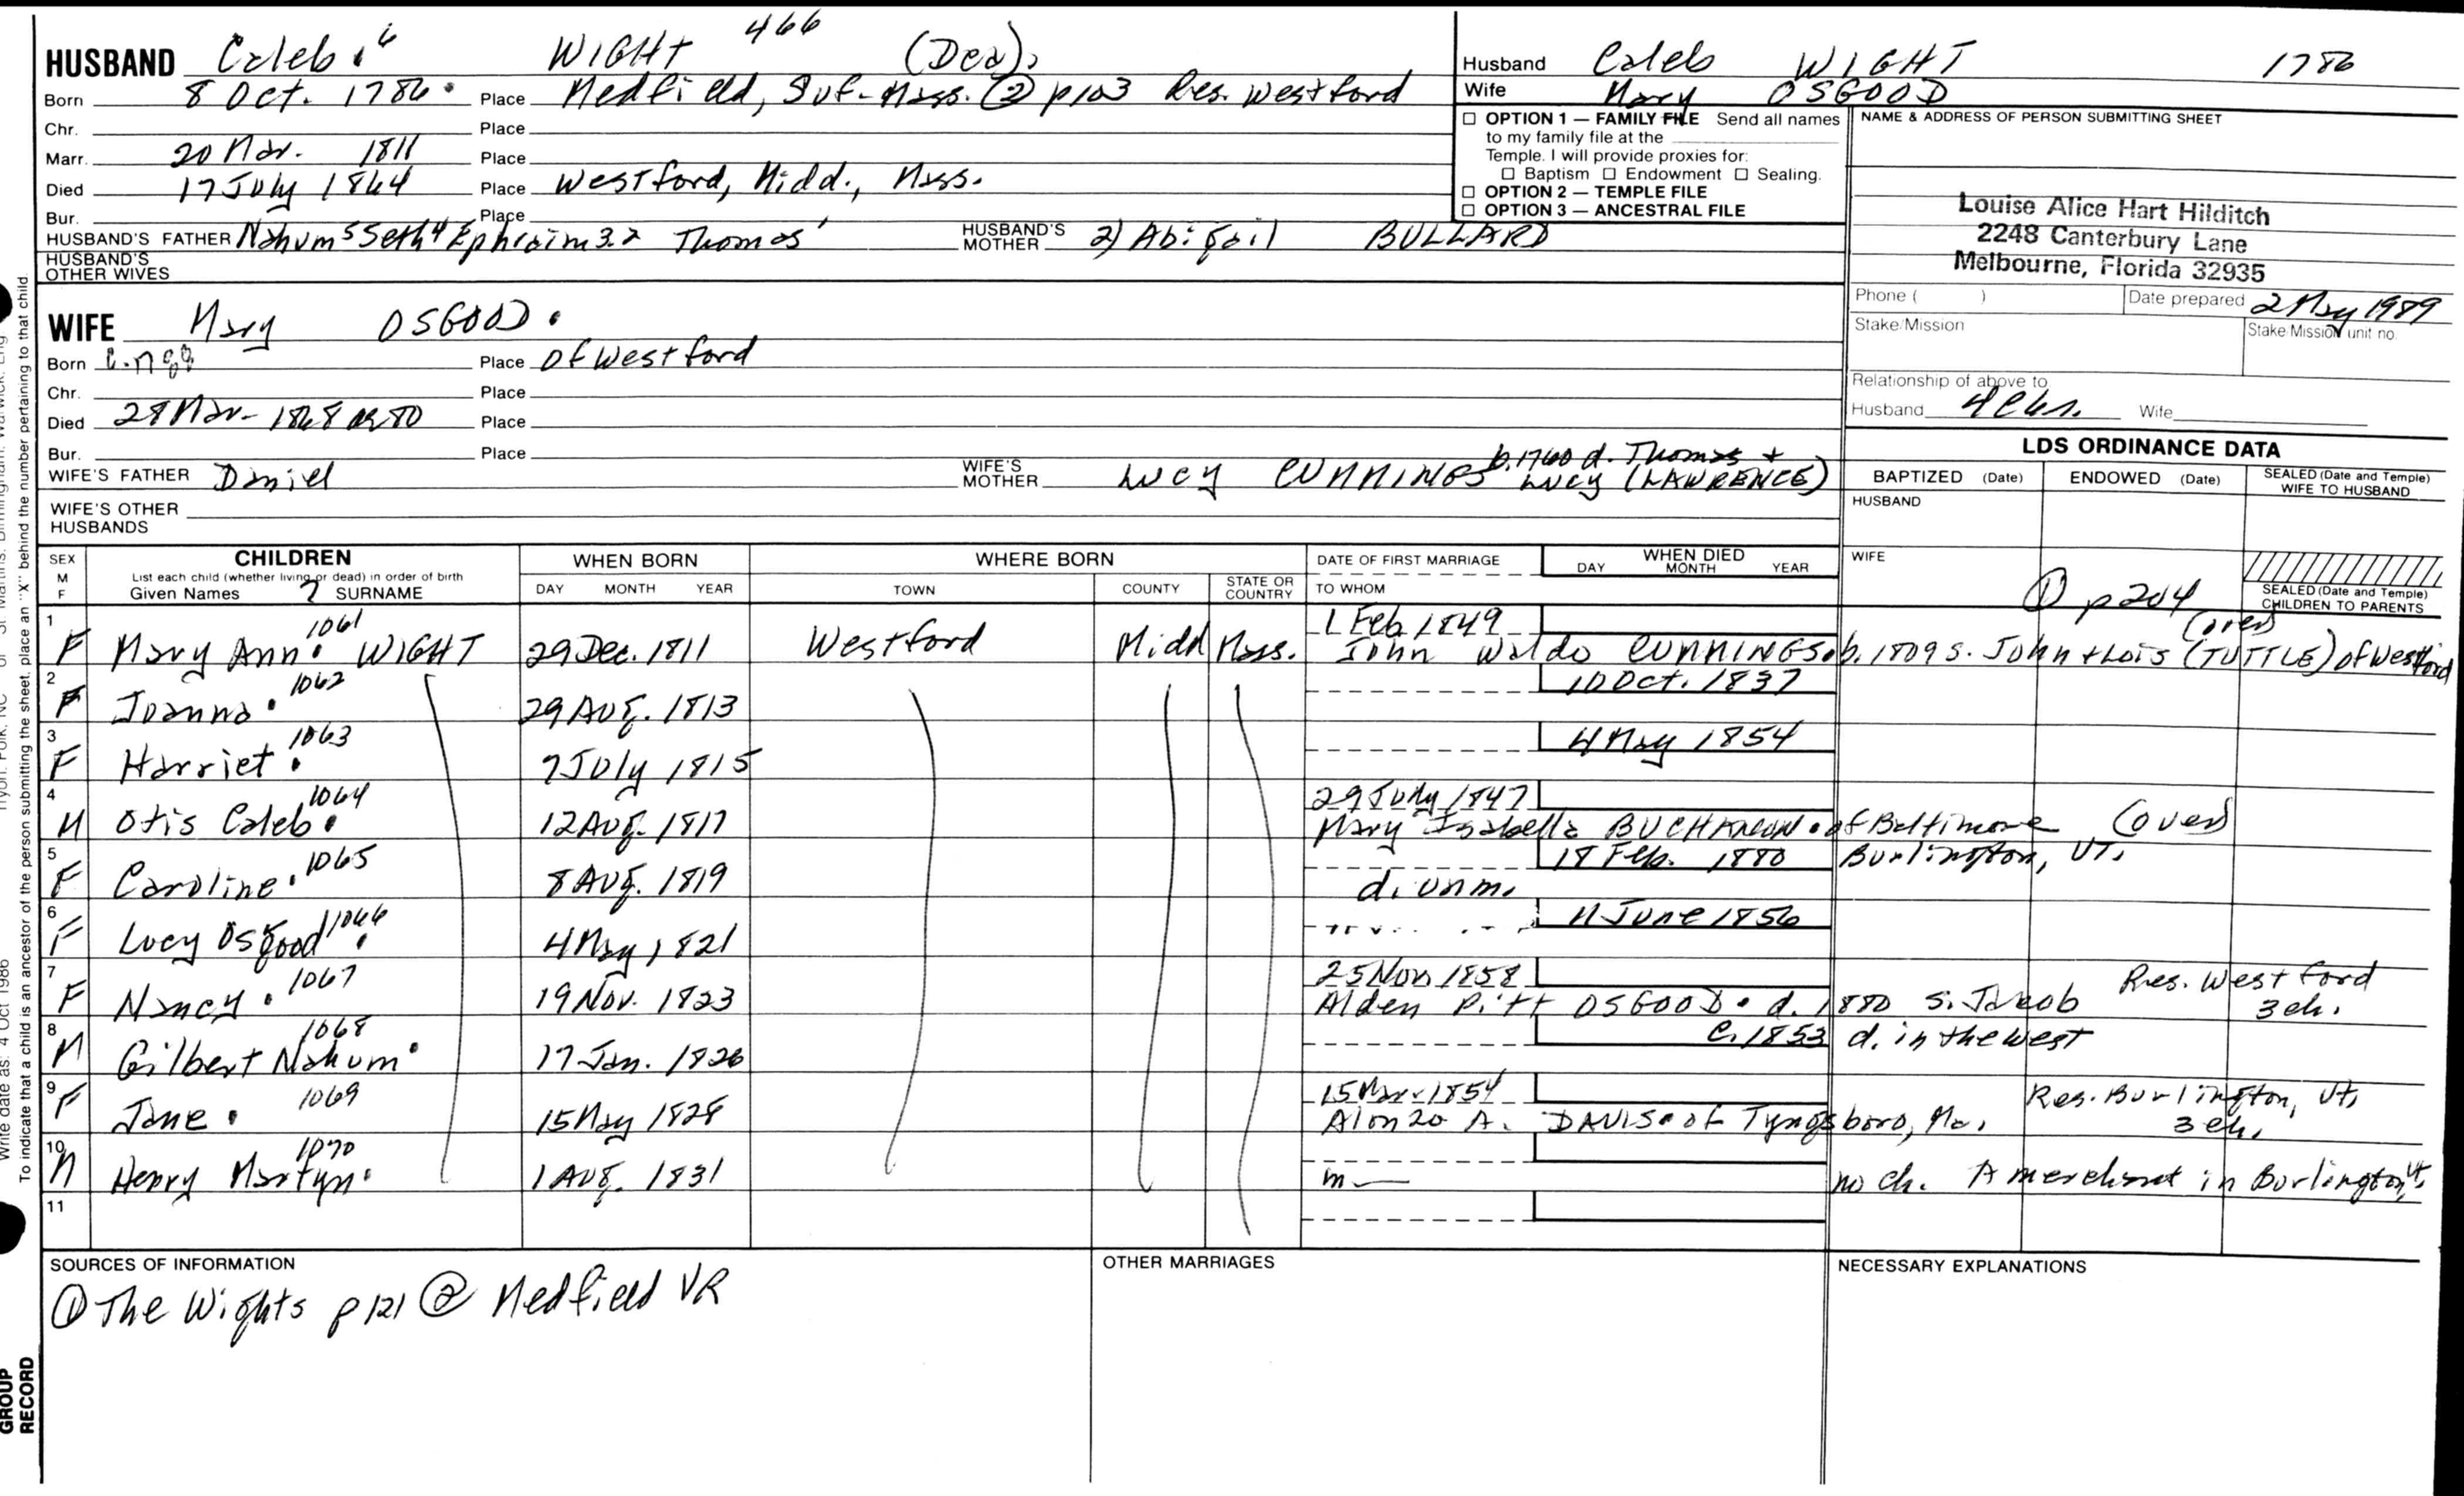 HUSBAND Caleb 6 WIGHT 466 (Dea).
Born 8 Oct. 1786 Place Medfield, Suf. Mass. ② p103 Res. Westford
Chr. Place
Marr. 20 Mar. 1811 Place
Died 17 July 1864 Place Westford, Midd., Mass.
Bur. Place
HUSBAND'S FATHER Nahum 5 Seth 4 Ephraim 3.2 Thomas 1 HUSBAND'S MOTHER 2) Abigail BULLARD
HUSBAND'S OTHER WIVES
WIFE Mary OSGOOD
Born Place of Westford
Chr. Place
Died 28 Mar. 1868 or 80 Place
Bur. Place
WIFE'S FATHER Daniel WIFE'S MOTHER Lucy CUMMINGS b. 1760 d. Thomas + Lucy (LAWRENCE)
WIFE'S OTHER HUSBANDS
Husband Caleb WIGHT 1786
Wife Mary OSGOOD
☐ OPTION 1 — FAMILY FILE Send all names
to my family file at the
Temple. I will provide proxies for:
☐ Baptism ☐ Endowment ☐ Sealing.
☐ OPTION 2 — TEMPLE FILE
☐ OPTION 3 — ANCESTRAL FILE
NAME & ADDRESS OF PERSON SUBMITTING SHEET
Louise Alice Hart Hilditch
2248 Canterbury Lane
Melbourne, Florida 32935
Phone ( ) Date prepared 2 May 1989
Stake/Mission Stake/Mission unit no.
Relationship of above to
Husband Wife
LDS ORDINANCE DATA
BAPTIZED (Date) ENDOWED (Date) SEALED (Date and Temple) WIFE TO HUSBAND
HUSBAND
WIFE
① p204 (over)
SEALED (Date and Temple) CHILDREN TO PARENTS
SEX M F CHILDREN WHEN BORN WHERE BORN DATE OF FIRST MARRIAGE WHEN DIED
List each child (whether living or dead) in order of birth
Given Names SURNAME DAY MONTH YEAR TOWN COUNTY STATE OR COUNTRY TO WHOM DAY MONTH YEAR
1 1061 1 Feb 1849
F Mary Ann WIGHT 29 Dec. 1811 Westford Midd Mass. John Waldo CUMMINGS b. 1809 s. John + Lois (TUTTLE) of Westford
2 1062 10 Oct. 1837
F Joanna 29 Aug. 1813
3 1063 4 May 1854
F Harriet 7 July 1815
4 1064 29 July 1847
M Otis Caleb 12 Aug. 1817 Mary Isabella of Baltimore (over)
5 1065 18 Feb. 1880 Burlington, Vt.
F Caroline 8 Aug. 1819 d. unm.
6 1066 11 June 1856
F Lucy Osgood 4 May 1821
7 1067 25 Nov 1858 Res. Westford
F Nancy 19 Nov. 1823 Alden Pitt OSGOOD d. 1880 s. Jacob 3 ch.
8 1068 C. 1853 d. in the west
M Gilbert Nahum 17 Jan. 1826
9 1069 15 Mar. 1854 Res. Burlington, Vt.
F Jane 15 May 1828 Alonzo A. DAVIS of Tyngsboro, Ma. 3 ch.
10 1070
M Henry Martyn 1 Aug. 1831 m — no ch. A merchant in Burlington, Vt.
11
SOURCES OF INFORMATION OTHER MARRIAGES NECESSARY EXPLANATIONS
① The Wights p 121 ② Medfield VR
Write date as: 4 Oct 1986
To indicate that a child is an ancestor of the person submitting the sheet, place an "X" behind the number pertaining to that child.
GROUP
RECORD